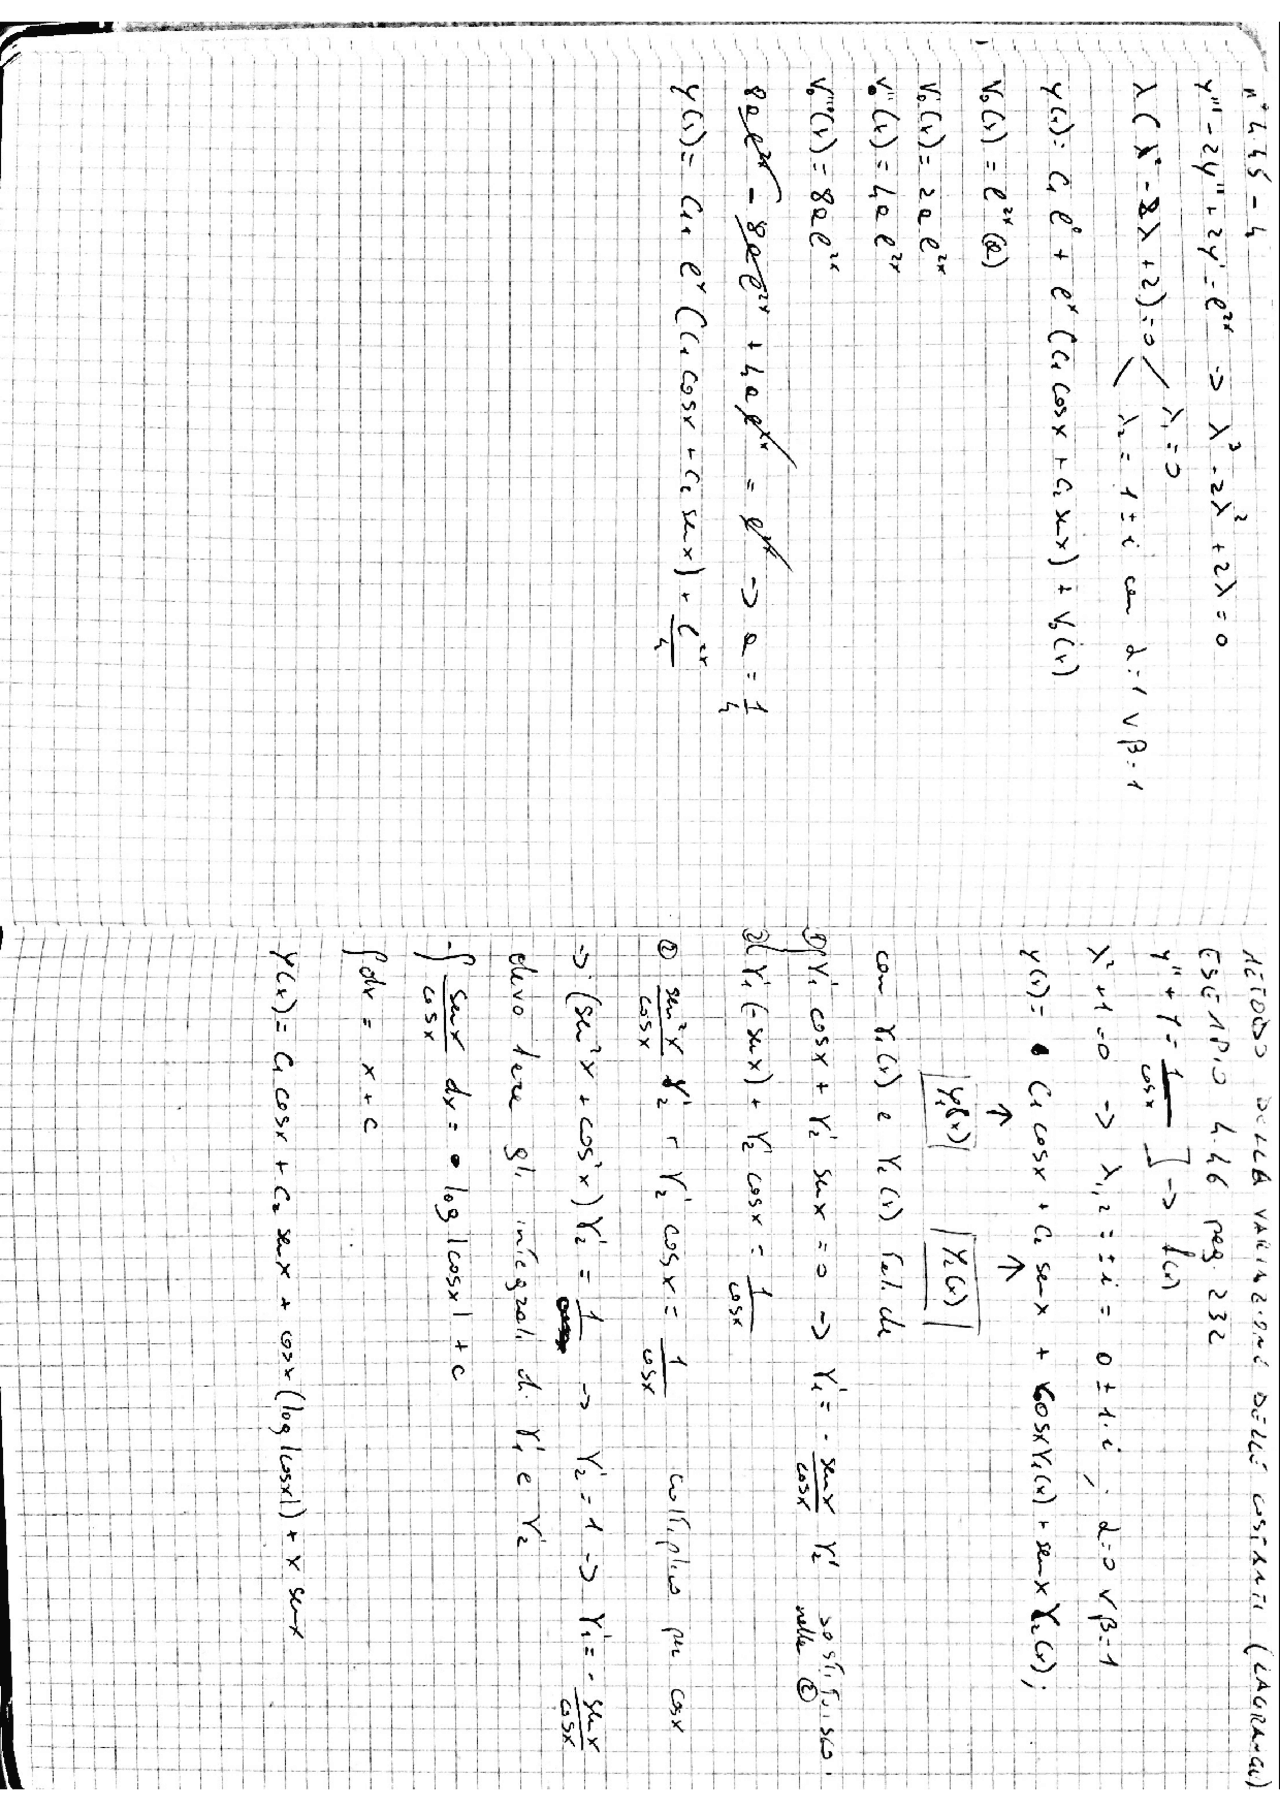 n° 445 - 4
y''' - 2y'' + 2y' = e^{2x} -> λ^3 - 2λ^2 + 2λ = 0
λ(λ^2 - 2λ + 2) = 0 λ_1 = 0
λ_2 = 1 ± i con α = 1 ∨ β = 1
y(x) = C_1 e^0 + e^x (C_1 cosx + C_2 senx) + V_0(x)
V_0(x) = e^{2x} (a)
V_0'(x) = 2a e^{2x}
V_0''(x) = 4a e^{2x}
V_0'''(x) = 8a e^{2x}
8a e^{2x} - 8a e^{2x} + 4a e^{2x} = e^{2x} -> a = 1/4
y(x) = C_1 e^x (C_1 cosx + C_2 senx) + e^{2x}/4
METODO DELLA VARIAZIONE DELLE COSTANTI (LAGRANGE)
ESEMPIO 4.46 pag. 232
y'' + y = 1/cosx ] -> f(x)
λ^2 + 1 = 0 -> λ_{1,2} = ± i = 0 ± 1·i ; α = 0 ∨ β = 1
y(x) = C_1 cosx + C_2 senx + cosx γ_1(x) + senx γ_2(x);
↑ ↑
|y_1(x)| |y_2(x)|
con γ_1(x) e γ_2(x) tal. che
① { γ_1' cosx + γ_2' senx = 0 -> γ_1' = - senx/cosx γ_2' sostituisco
nella ②
② { γ_1' (-senx) + γ_2' cosx = 1/cosx
② sen^2x/cosx γ_2' + γ_2' cosx = 1/cosx moltiplico per cosx
-> (sen^2x + cos^2x) γ_2' = 1 -> γ_2' = 1 -> γ_1' = - senx/cosx
devo fare gli integrali di γ_1' e γ_2'
-∫ senx/cosx dx = log|cosx| + c
∫dx = x + c
y(x) = C_1 cosx + C_2 senx + cosx (log|cosx|) + x senx